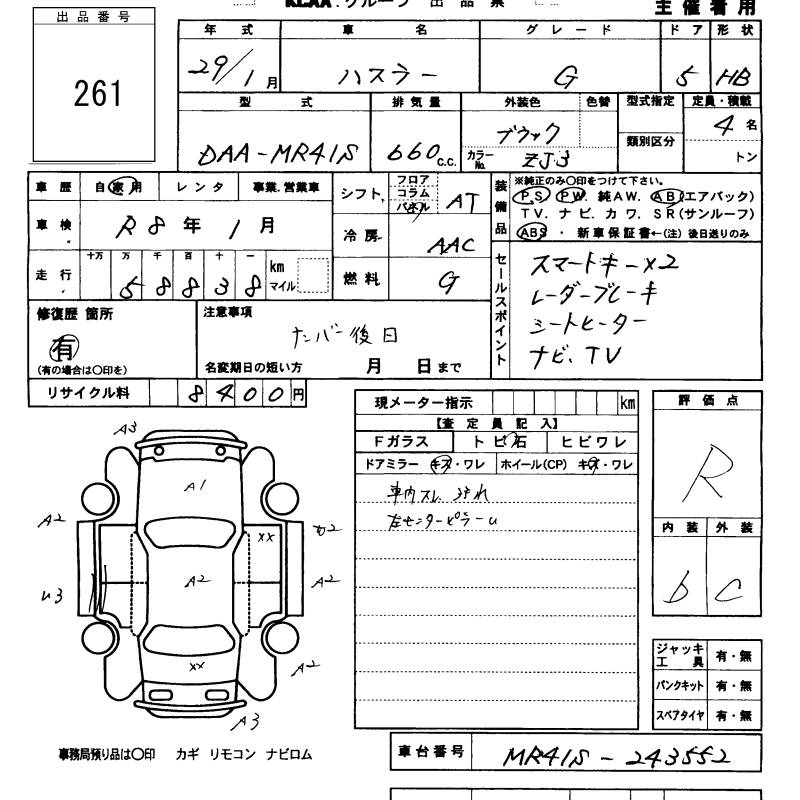 出品番号
261
主催者用
年式 車名 グレード ドア 形状
29/1月 ハスラー G 5 HB
型式 排気量 外装色 色替 型式指定 定員・積載
DAA-MR41S 660 c.c. ブラック カラーNo. ZJ3 類別区分 4名
トン
車歴 自家用 レンタ 事業.営業車
車検 R8年1月
走行 十万 万 千 百 十 一
58838 km マイル
シフト フロア コラム パネル AT
冷房 AAC
燃料 G
装備品 ※純正のみ○印をつけて下さい。
PS PW 純AW. AB(エアバック)
TV. ナビ. カワ. SR(サンルーフ)
ABS ・ 新車保証書←(注) 後日送りのみ
セールスポイント
スマートキー×2
レーダーブレーキ
シートヒーター
ナビ、TV
修復歴 箇所
有
(有の場合は○印を)
注意事項
ナンバー後日
名変期日の短い方 月 日まで
リサイクル料 8400円
現メーター指示 km
【査定員記入】
Fガラス トビ石 ヒビワレ
ドアミラー キズ・ワレ ホイール(CP) キズ・ワレ
車内スレ
左センターピラーU
評価点
R
内装 外装
b C
A3
A1
A2
XX
A2
A2
U3
A2
XX
A2
A3
ジャッキ工具 有・無
パンクキット 有・無
スペアタイヤ 有・無
事務局預り品は○印 カギ リモコン ナビロム
車台番号 MR41S-243552